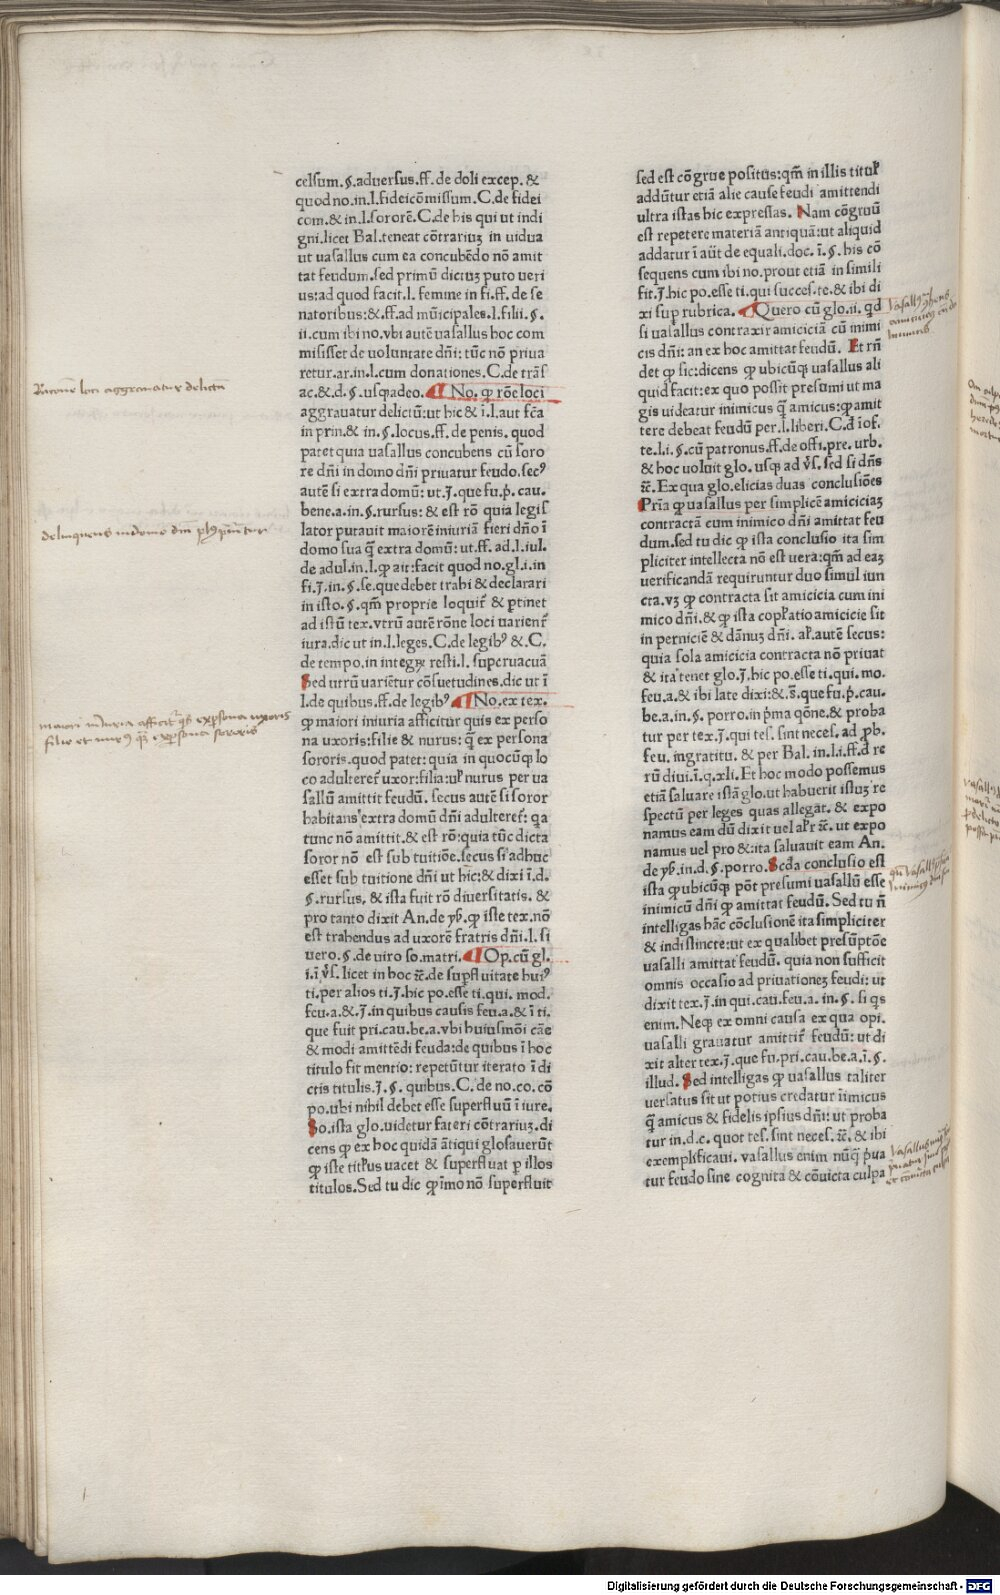 celsum.§.aduersus.ff.de doli excep.&
quod no.in.l.fideicōmissum.C.de fidei
com.& in.l.sororē.C.de his qui ut indi
gni.licet Bal.teneat cōtrariuꝫ in uidua
ut uasallus cum ea concubēdo nō amit
tat feudum.sed primū dictuꝫ puto ueri
us:ad quod facit.l. femine in fi.ff. de se
natoribus:& ff.ad mūicipales.l.filii. §.
ii.cum ibi no.vbi autē uasallus hoc com
misisset de uoluntate dñi: tūc nō priua
retur.ar.in.l.cum donationes.C.de trās
ac.&.d.§.usqꝫadeo. ¶ No. ꝙ rōe loci
aggrauatur delictū:ut hic & ī.l.aut fča
in prin.& in.§.locus.ff.de penis. quod
patet quia uasallus concubens cū soro
re dñi in domo dñi priuatur feudo.sec⁹
autē si extra domū: ut.J.que fu.p̄. cau.
bene.a.in.§.rursus: & est rō quia legis
lator putauit maiorē iniuriā fieri dño ī
domo sua q̄ extra domū: ut.ff. ad.l.iul.
de adul.in.l.ꝙ ait:facit quod no.gl.i.in
fi.J.in.§.se.que debet trahi & declarari
in isto.§.qm̄ proprie loquit̄ & ꝑtinet
ad istū tex.vtrū autē rōne loci uarient̄
iura.dic ut in.l.leges.C.de legib⁹ &.C.
de tempo.in integꝝ resti.l. superuacuā
Sed utrū uariētur cōsuetudines.dic ut ī
l.de quibus.ff.de legib⁹. ¶ No.ex tex.
ꝙ maiori iniuria afficitur quis ex perso
na uxoris:filie & nurus: q̄ ex persona
sororis.quod patet: quia in quocūqꝫ lo
co adulteret̄ uxor:filia:ul̕ nurus per ua
sallū amittit feudū. secus autē si soror
habitans extra domū dñi adulteret̄: qa
tunc nō amittit.& est rō:quia tūc dicta
soror nō est sub tuitiōe.secus si adhuc
esset sub tuitione dñi ut hic:& dixi ī.d.
§.rursus, & ista fuit rō diuersitatis. &
pro tanto dixit An.de yb̕. ꝙ iste tex.nō
est trahendus ad uxorē fratris dñi.l. si
uero.§.de uiro so.matri. ¶ Op.cū gl.
i.ī ṽs. licet in hoc ⁊c̄.de suꝑfluitate hui⁹
ti.per alios ti.J.hic po.esse ti.qui. mod.
feu.a.&.J.in quibus causis feu.a.& ī ti.
que fuit pri.cau.be.a.vbi huiusmōi cāe
& modi amittēdi feuda:de quibus ī hoc
titulo fit mentio: repetūtur iterato ī di
ctis titulis.J.§. quibus.C. de no.co.cō
po.ubi nihil debet esse superfluū ī iure.
So.ista glo.uidetur fateri cōtrariuꝫ.di
cens ꝙ ex hoc quidā ātiqui glosauerūt
ꝙ iste titl̕us uacet & superfluat ꝑ illos
titulos.Sed tu dic ꝙ īmo nō superfluit
sed est cōgrue positus:qm̄ in illis titul̕
addūtur etiā alie cause feudi amittendi
ultra istas hic expressas. Nam cōgruū
est repetere materiā antiquā:ut aliquid
addatur ī aūt de equali.doc.ī.§. his cō
sequens cum ibi no.prout etiā in simili
fit.J.hic po.esse ti.qui succes.te.& ibi di
xi suꝑ rubrica. ¶ Quero cū glo.ii. qd
si uasallus contraxit amiciciā cū inimi
cis dñi: an ex hoc amittat feudū. Et rñ
det ꝙ sic:dicens ꝙ ubicūqꝫ uasallus ali
quid facit:ex quo possit presumi ut ma
gis uideatur inimicus q̄ amicus:ꝙ amit
tere debeat feudū per.l.liberi.C.d̄ iof.
te.l.i.§.cū patronus.ff.de offi.pre. urb.
& hoc uoluit glo. usqꝫ ad ṽs. sed si dñs
⁊c̄. Ex qua glo.elicias duas conclusiōes
Pria ꝙ uasallus per simplicē amiciciaꝫ
contractā cum inimico dñi amittat feu
dum.sed tu dic ꝙ ista conclusio ita sim
pliciter intellecta nō est uera:qm̄ ad eaꝫ
uerificandā requiruntur duo simul iun
cta.vꝫ ꝙ contracta sit amicicia cum ini
mico dñi.& ꝙ ista copl̕atio amicicie sit
in perniciē & dānuꝫ dñi. al̕.autē secus:
quia sola amicicia contracta nō priuat
& ita tenet glo.J.hic po.esse ti.qui. mo.
feu.a.& ibi late dixi:&.s̄.que fu.p̄.cau.
be.a.in.§. porro.in p̄ma qōne.& proba
tur per tex.J.qui tes. sint neces. ad ꝓb.
feu. ingratitu. & per Bal. in.l.i.ff.d̄ re
rū diui.ī.q.xli. Et hoc modo possemus
etiā saluare istā glo.ut habuerit istuꝫ re
spectū per leges quas allegat. & expo
namus eam dū dixit uel al̕r ⁊c̄. ut expo
namus uel pro &:ita saluauit eam An.
de yb̕.in.d.§.porro. Scđa conclusio est
ista ꝙ ubicūqꝫ pōt presumi uasallū esse
inimicū dñi ꝙ amittat feudū. Sed tu ñ
intelligas hāc cōclusionē ita simpliciter
& indistincte:ut ex qualibet presūptōe
uasalli amittat feudū. quia non sufficit
omnis occasio ad priuationeꝫ feudi: ut
dixit tex.J.in qui.cau.feu.a. in. §. si q̇s
enim. Neqꝫ ex omni causa ex qua opi.
uasalli grauatur amittit̄ feudū: ut di
xit alter tex.J.que fu.pri.cau.be.a.ī.§.
illud. Sed intelligas ꝙ uasallus taliter
uersatus sit ut potius credatur īimicus
q̄ amicus & fidelis ipsius dñi: ut proba
tur in.d.c. quot tes. sint neces. ⁊c̄. & ibi
exemplificaui. vasallus enim nūq̄ p̄ua
tur feudo sine cognita & cōuicta culpa
Racione loci aggrauatur delictū
maiori iniuria afficit̄ q̇s ex persona uxoris
filie et nurus q̄ ex persona sororis
Digitalisierung gefördert durch die Deutsche Forschungsgemeinschaft - DFG